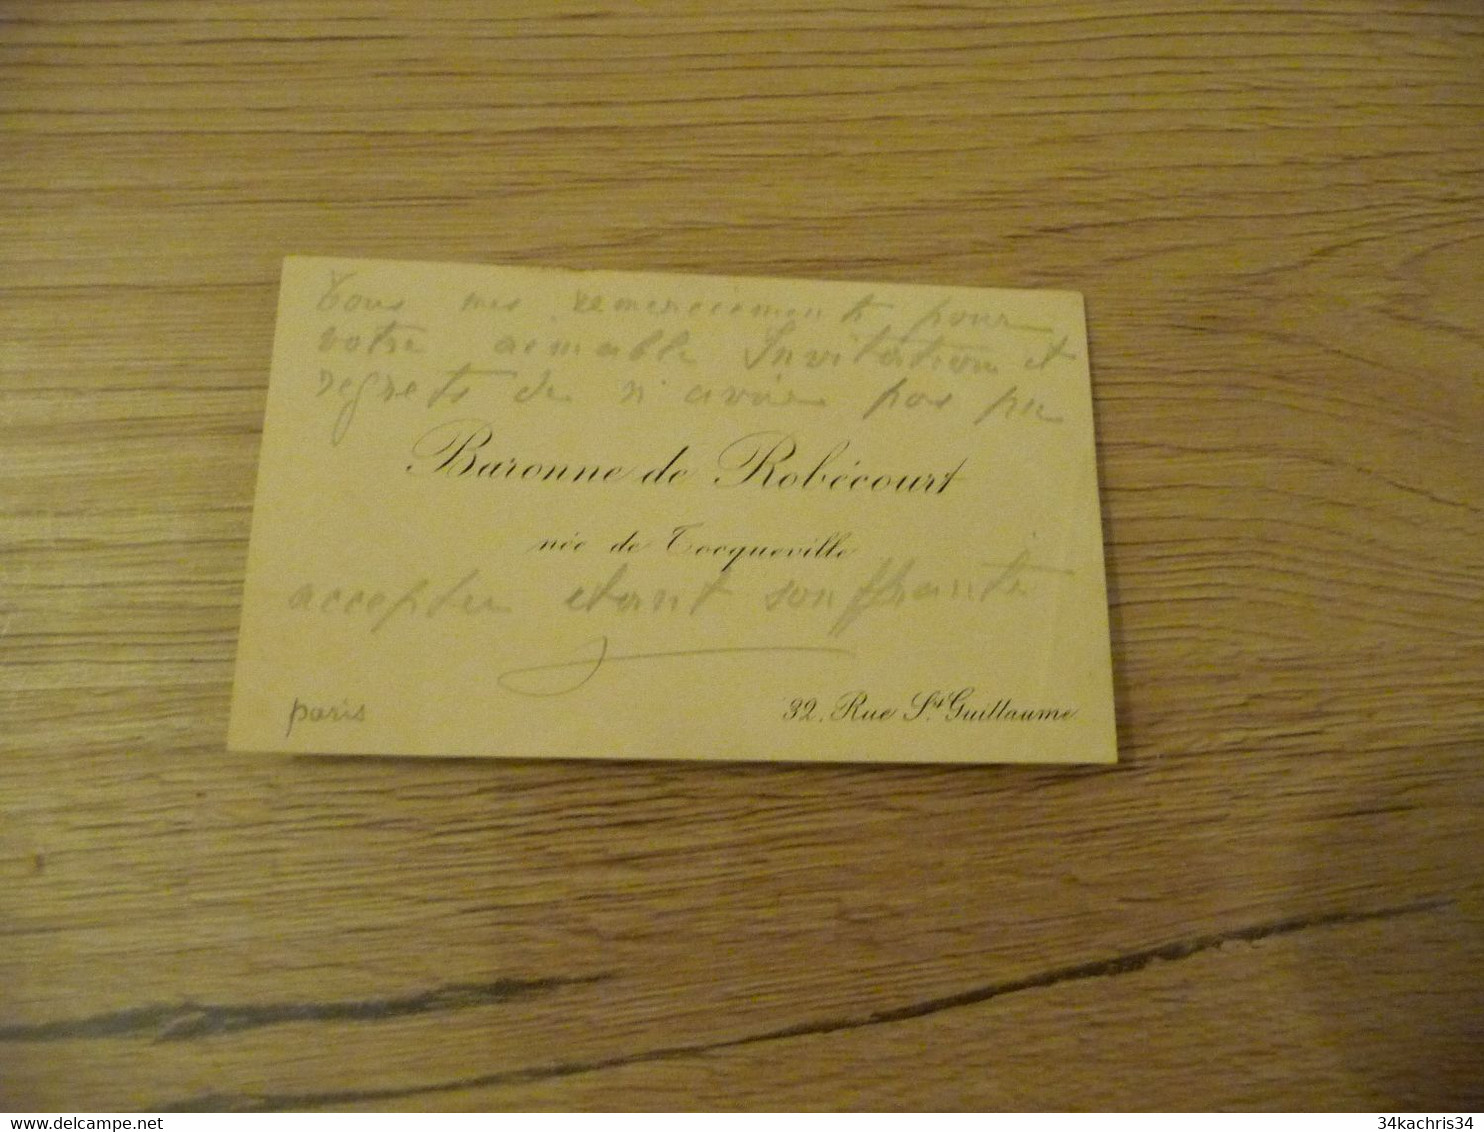 Tous mes remerciements pour
votre aimable Invitation et
regrets de n'avoir pas pu
Baronne de Robécourt
née de Tocqueville
accepter etant souffrante
paris
32, Rue St Guillaume
34kachris34